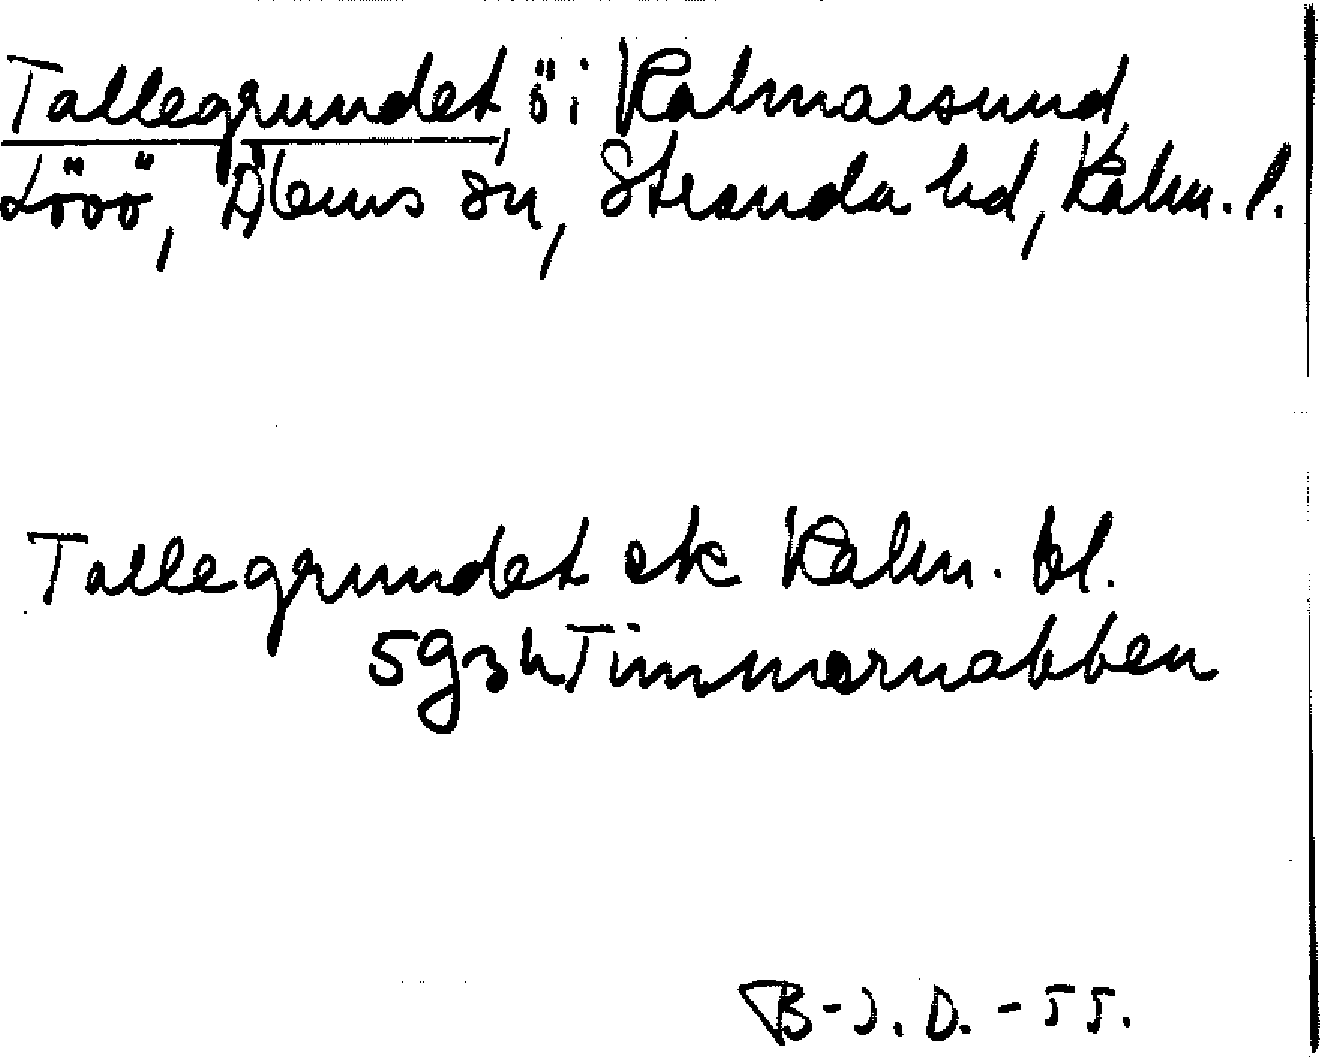 Tallegrundet, ö i Kalmarsund,
Lööö, Ålems sn, Stranda hd, Kalm. l.
Tallegrundet ek Kalm. bl.
5g3h Timmernabben
B-J. D. - 55.